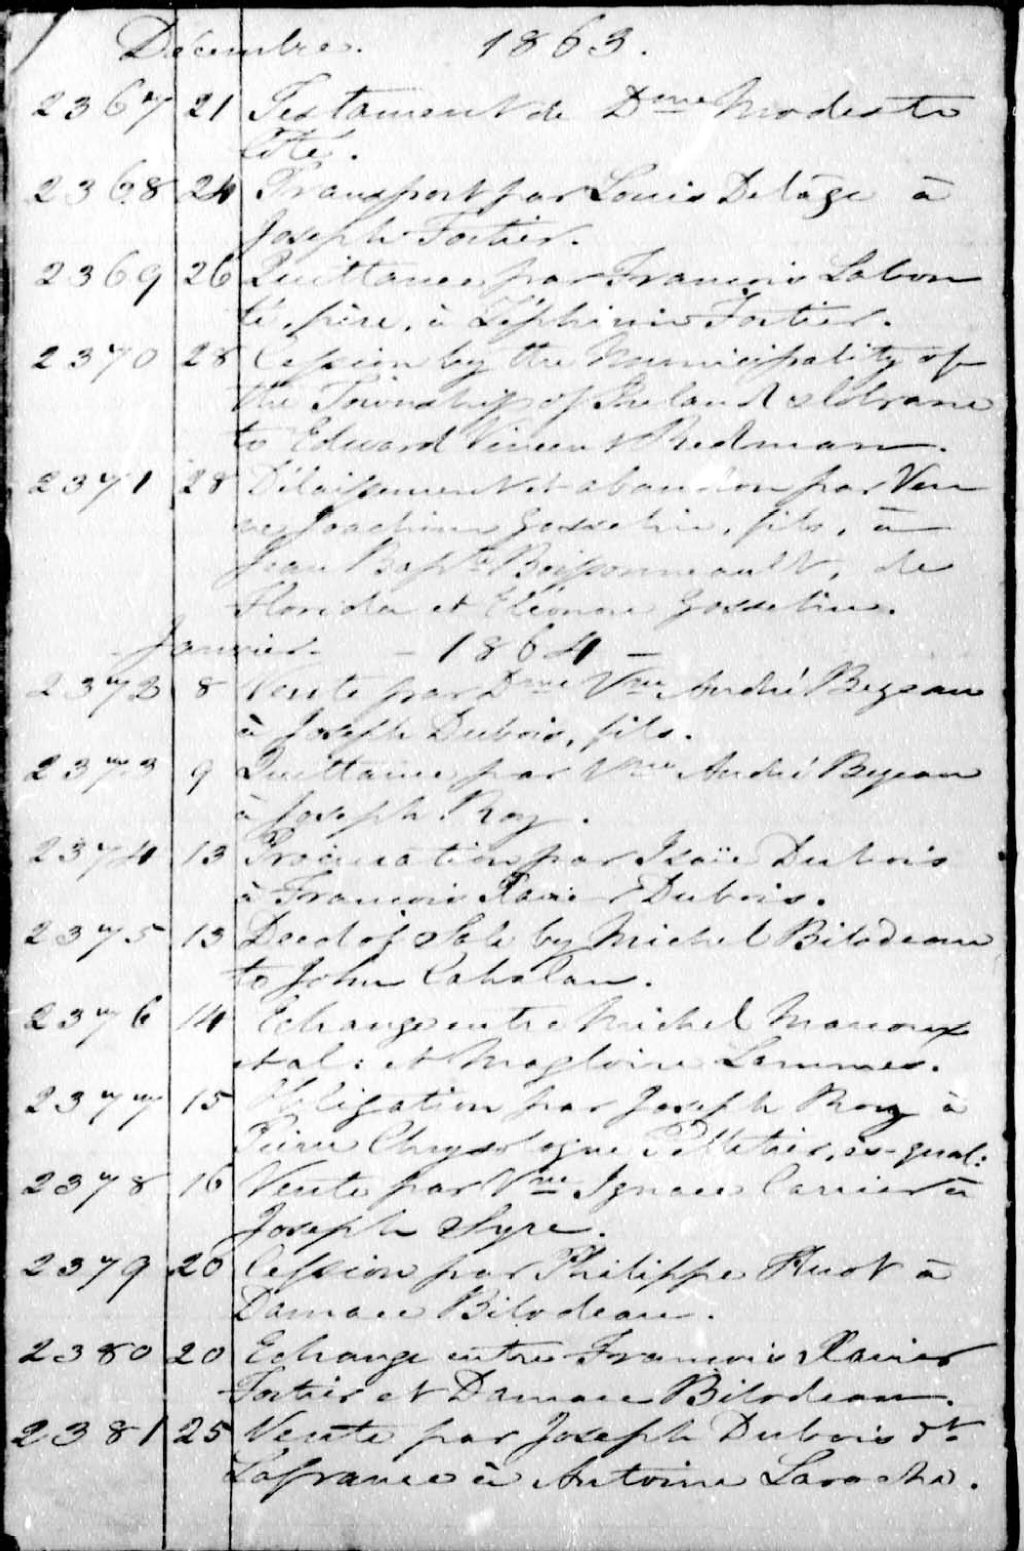 Décembre. 1863.
2367 21 Testament de Dme Modeste
Côté.
2368 24 Transport par Louis Delâge à
Joseph Fortier.
2369 26 Quittance par François Labon
té, père, à Zéphirin Fortier.
2370 28 Cession by the Municipality of
the Township of Sheland &
to Edward Vincent Redman.
2371 28 Délaissement et abandon par Veu
ve Joachim Gosselin, fils, à
Jean Bapte Boissonneault, de
Florida et Eléonore Gosselin.
Janvier. - 1864 -
2372 8 Vente par Dme Vve André Begean
à Joseph Dubois, fils.
2373 9 Quittance par Vve André Begean
à Joseph Roy.
2374 13 Procuration par Isaïe Dubois
à François Xavier Dubois.
2375 13 Deed of Sale by Michel Bilodeau
to John Cahalan.
2376 14 Echange entre Michel Marcoux
et al: et Magloire Lemmes.
2377 15 Obligation par Joseph Roy à
Pierre Chrysologue Pelletier, ès-qual:
2378 16 Vente par Vve Ignace Carrier à
Joseph Syre.
2379 20 Cession par Philippe Huot à
Damase Bilodeau.
2380 20 Echange entre François Xavier
Fortier et Damase Bilodeau.
2381 25 Vente par Joseph Dubois dt
Lafrance à Antoine Laroche.